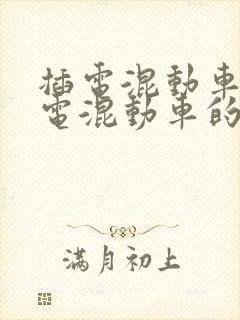 插電混動車
電混動車的
滿月初上